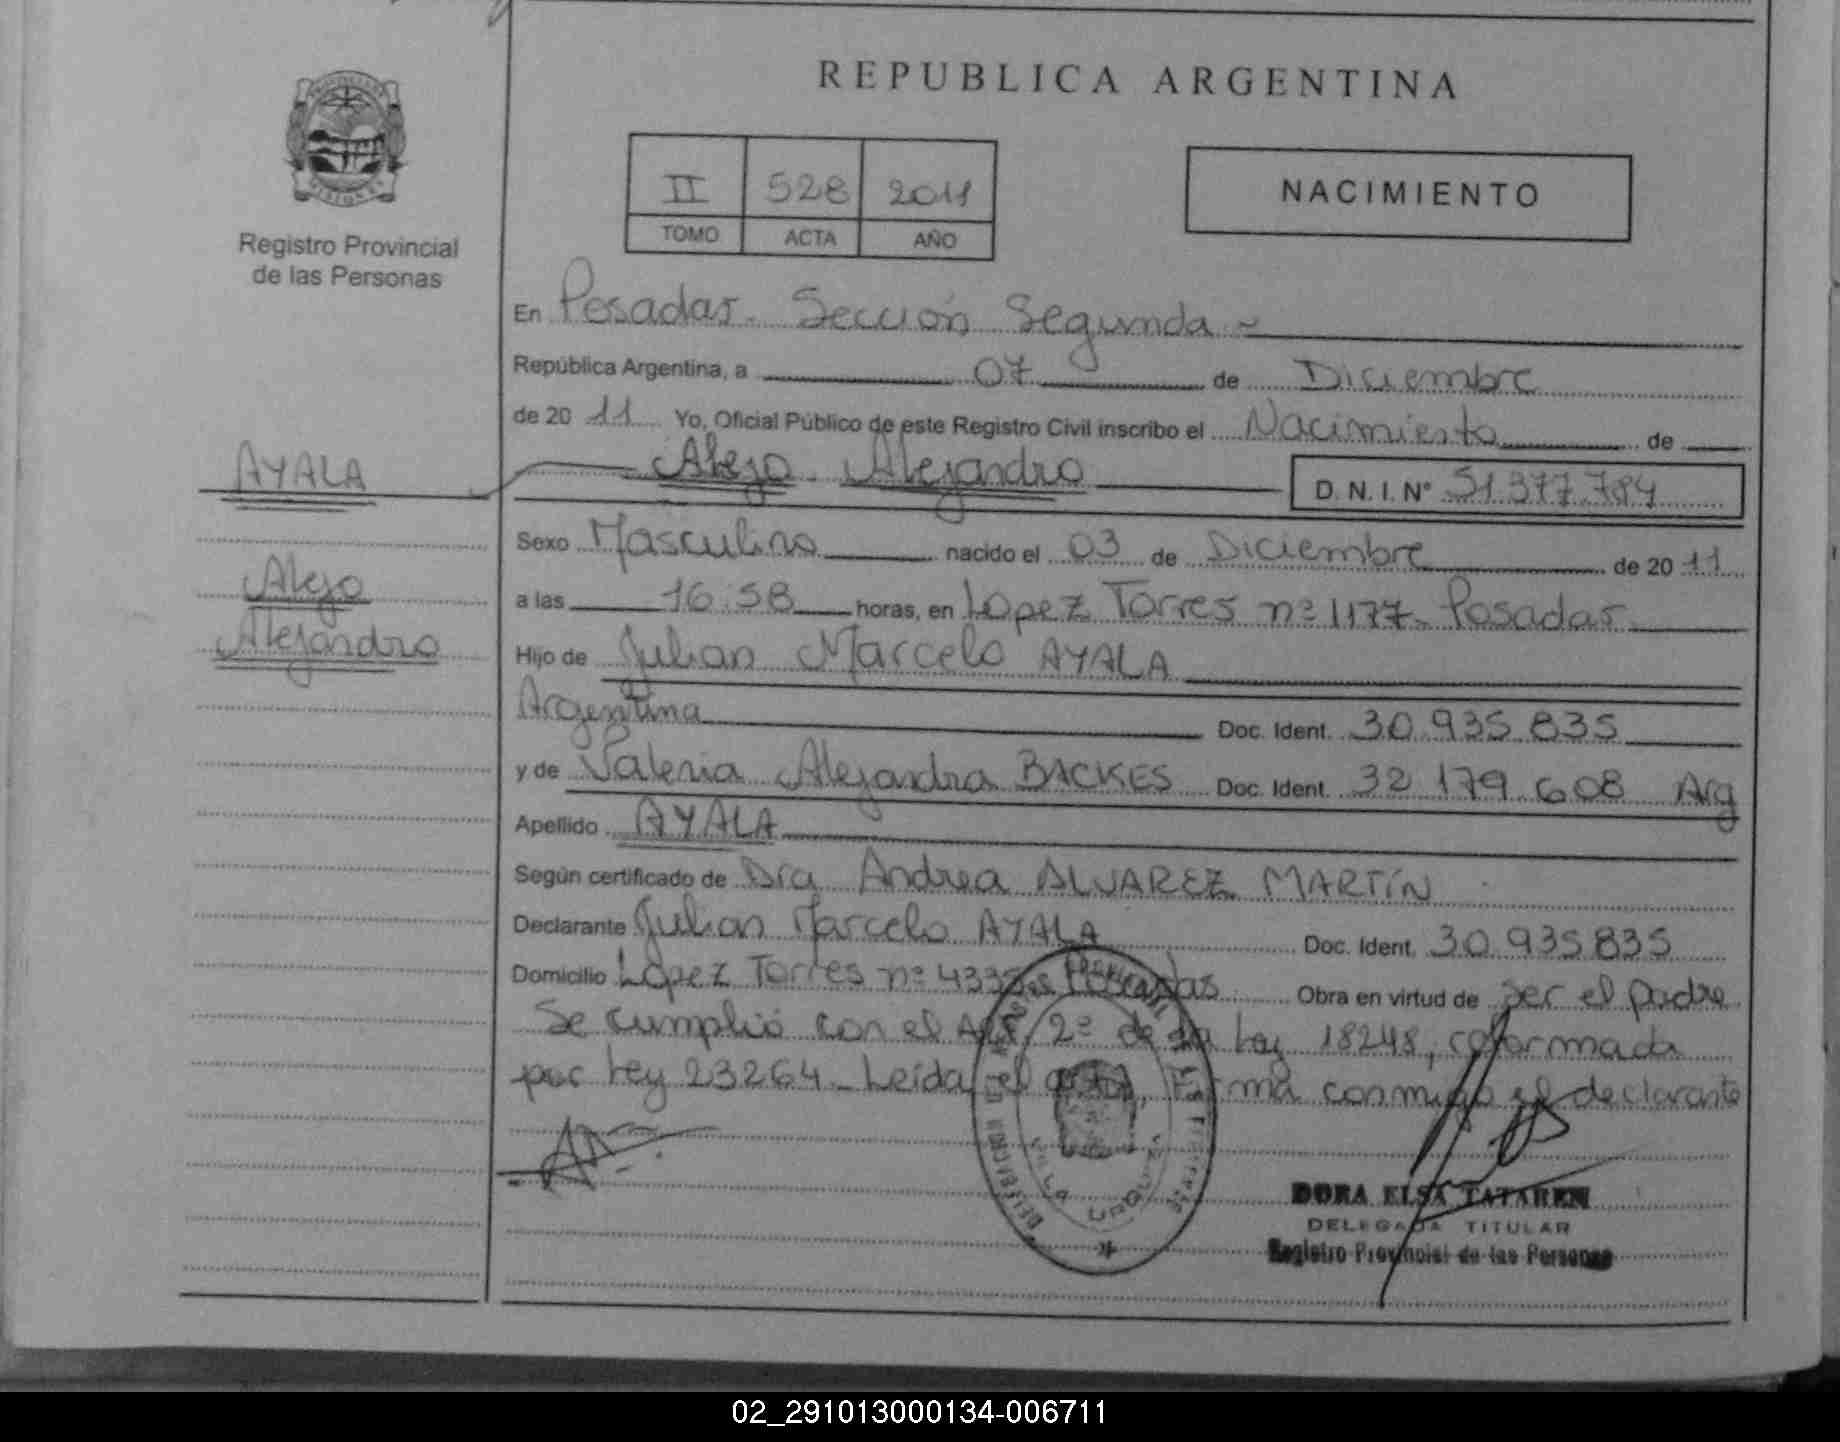 REPUBLICA ARGENTINA
II 528 2011
TOMO ACTA AÑO
NACIMIENTO
Registro Provincial
de las Personas
En Posadas. Sección Segunda
República Argentina, a 07 de Diciembre
de 2011 Yo, Oficial Público de este Registro Civil inscribo el Nacimiento de
AYALA
Alejo Alejandro D. N. I. Nº 51.377.784
Sexo Masculino nacido el 03 de Diciembre de 2011
Alejo
Alejandro
a las 16:58 horas, en Lopez Torres nº 1177. Posadas.
Hijo de Julian Marcelo AYALA
Argentina Doc. Ident. 30.935.835
y de Valeria Alejandra BACKES Doc. Ident. 32 179 608 Arg
Apellido AYALA
Según certificado de Dra Andrea ALVAREZ MARTÍN
Declarante Julian Marcelo AYALA Doc. Ident. 30.935835
Domicilio Lopez Torres nº Posadas Obra en virtud de ser el padre
Se cumplió con el Art 2º de la Ley 18248, reformada
por Ley 23264 - Leída el acta, Firma conmigo el declarante
DORA ELSA TATAREN
DELEGADA TITULAR
Registro Provincial de las Personas
02_291013000134-006711